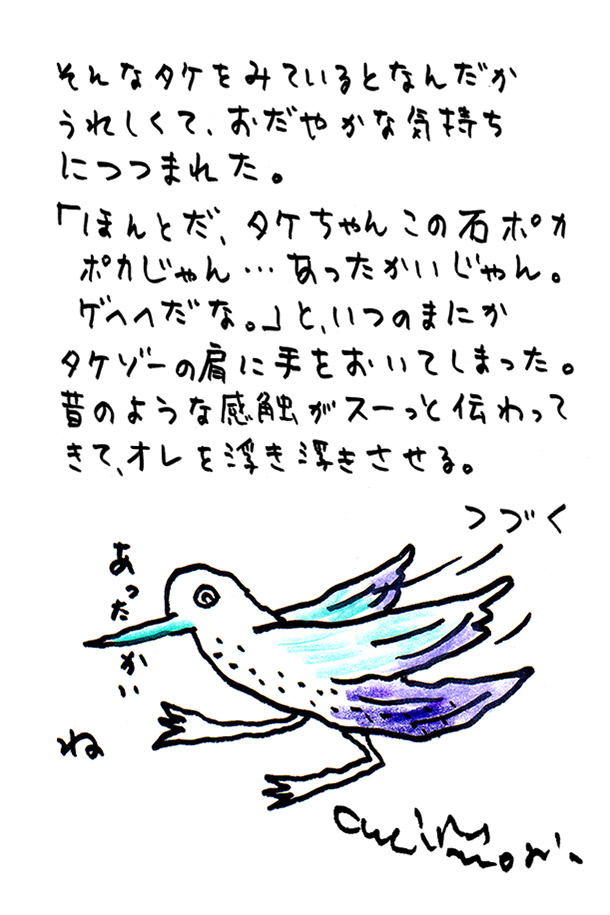 そんなタケをみているとなんだか
うれしくて、おだやかな気持ち
につつまれた。
「ほんとだ、タケちゃんこの石ポカ
ポカじゃん…あったかいじゃん。
ゲヘヘだな。」と、いつのまにか
タケゾーの肩に手をおいてしまった。
昔のような感触がスーっと伝わって
きて、オレを浮き浮きさせる。
つづく
あったかい
ね